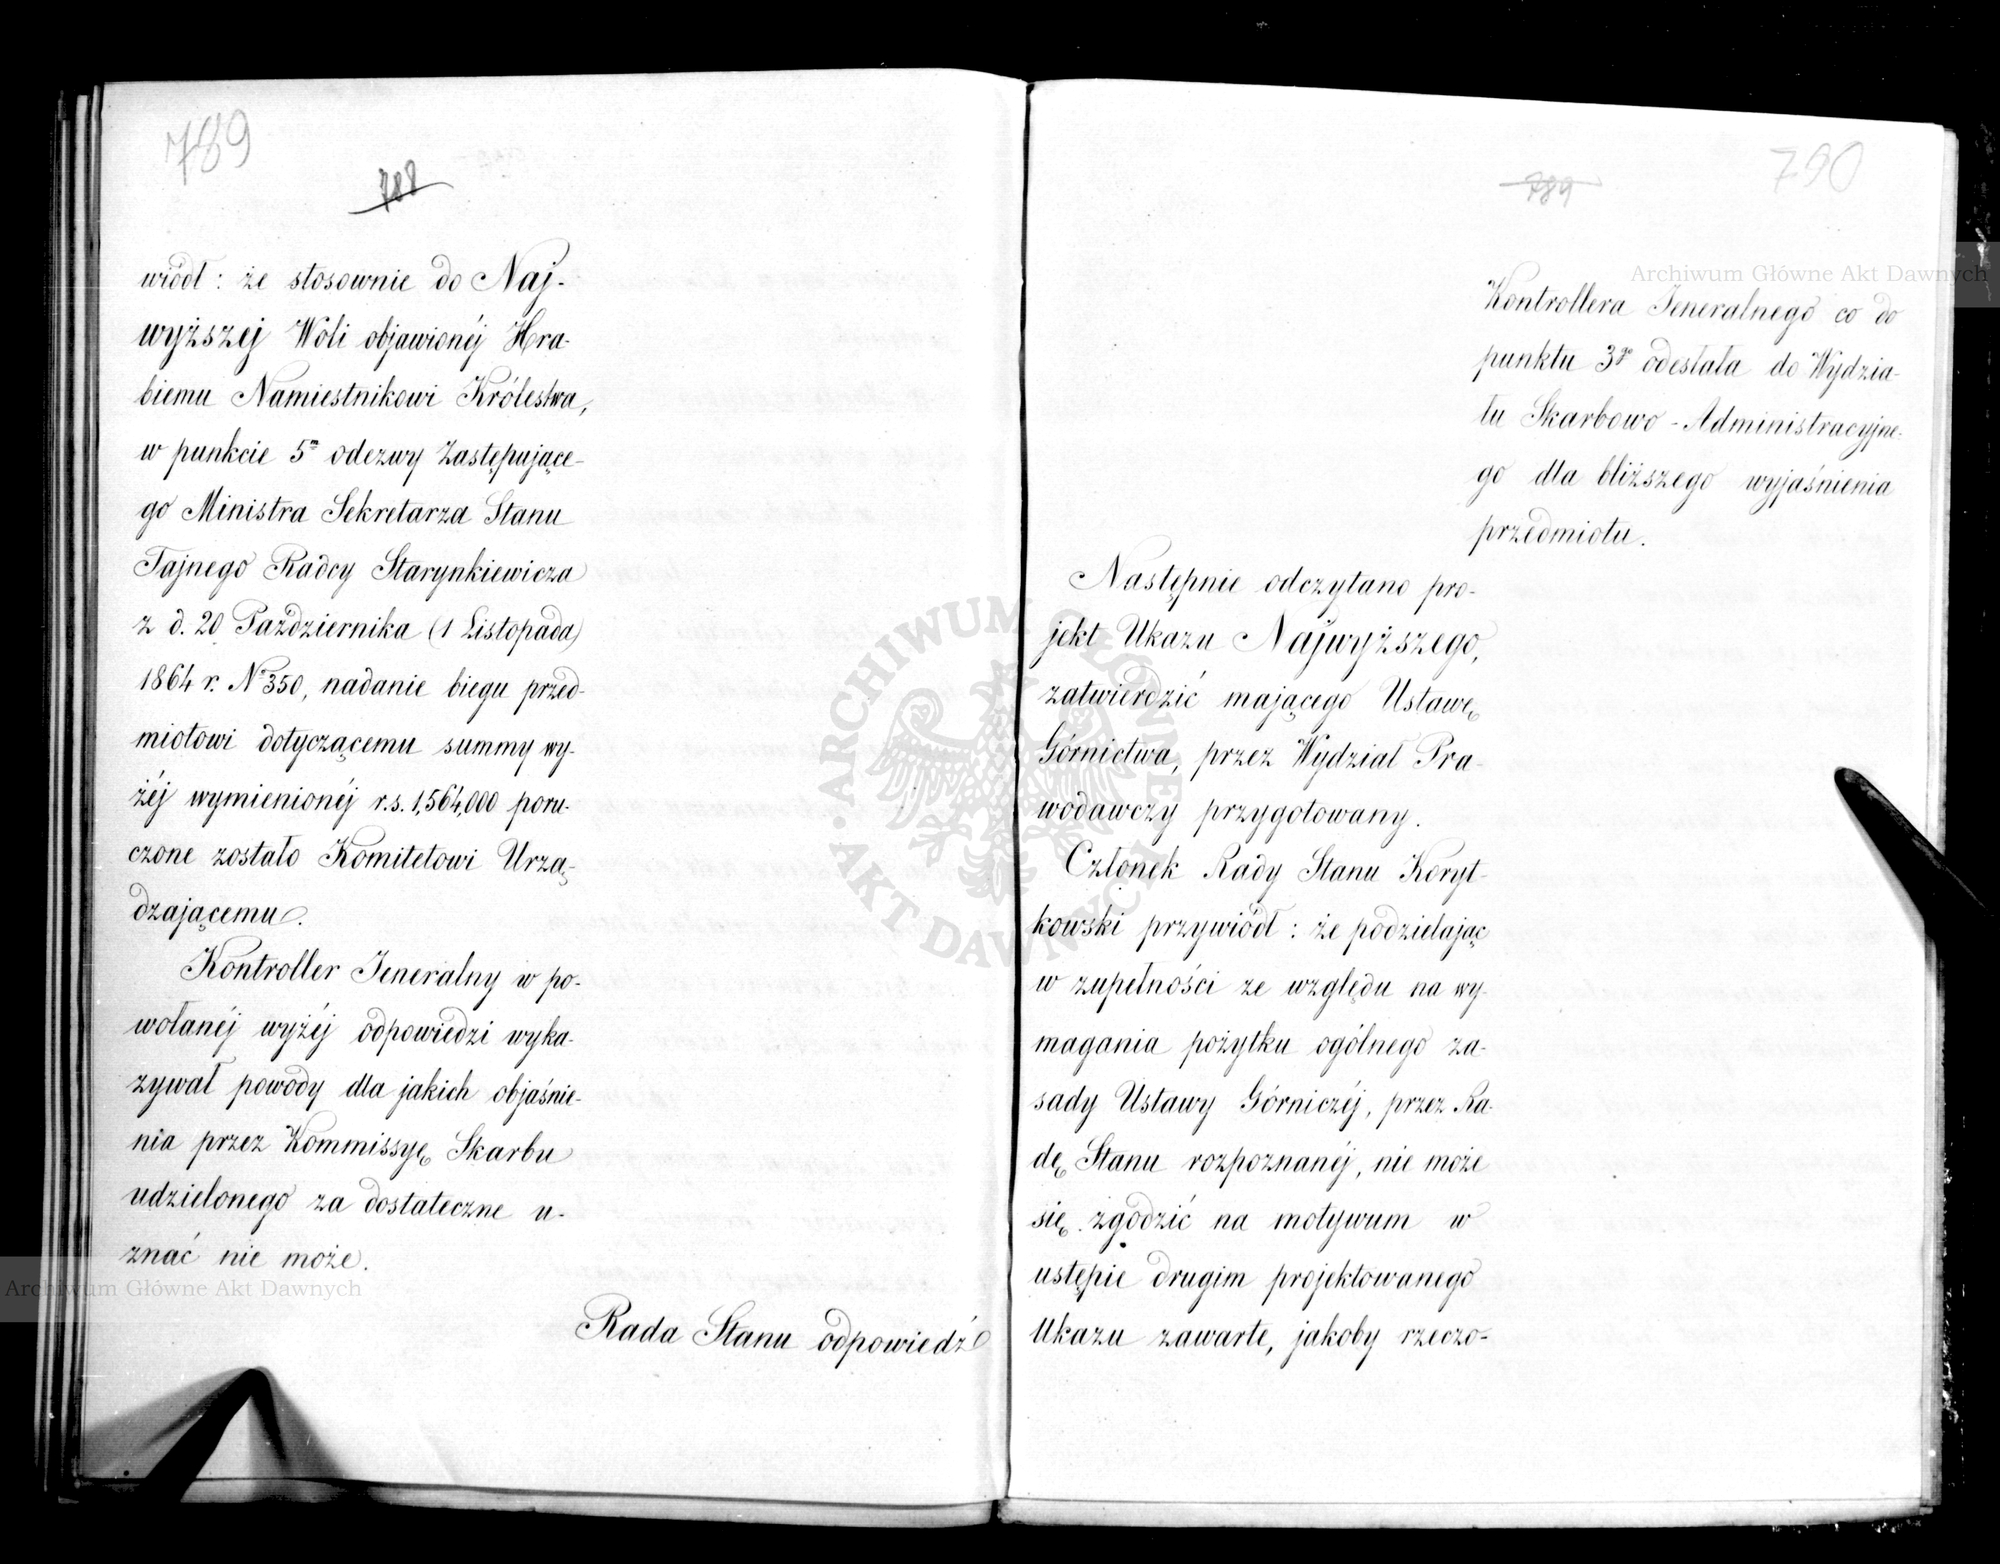 789
788
wiódł: że stosownie do Naj-
wyższej Woli objawionéj Hra-
biemu Namiestnikowi Królestwa,
w punkcie 5m odezwy Zastępujące-
go Ministra Sekretarza Stanu
Tajnego Radcy Starynkiewicza
z d. 20 Października (1 Listopada)
1864 r. No 350, nadanie biegu przed-
miotowi dotyczącemu summy wy-
żéj wymienionéj r.s. 1,564,000 poru-
czone zostało Komitetowi Urzą-
dzającemu.
Kontroller Jeneralny w po-
wołanéj wyżéj odpowiedzi wyka-
zywał powody dla jakich objaśnie-
nia przez Kommissyę Skarbu
udzielonego za dostateczne u-
znać nie może.
Rada Stanu odpowiedź
790
789
Kontrollera Jeneralnego co do
punktu 3go odesłała do Wydzia-
łu Skarbowo-Administracyjne-
go dla bliższego wyjaśnienia
przedmiotu.
Następnie odczytano pro-
jekt Ukazu Najwyższego,
zatwierdzić mającego Ustawę
Górnictwa, przez Wydział Pra-
wodawczy przygotowany.
Członek Rady Stanu Koryt-
kowski przywiódł: że podzielając
w zupełności ze względu na wy-
magania pożytku ogólnego za-
sady Ustawy Górniczéj, przez Ra-
dę Stanu rozpoznanéj, nie może
się zgodzić na motywum w
ustępie drugim projektowanego
Ukazu zawarte, jakoby rzeczo-
Archiwum Główne Akt Dawnych
Archiwum Główne Akt Dawnych
ARCHIWUM GŁÓWNE AKT DAWNYCH